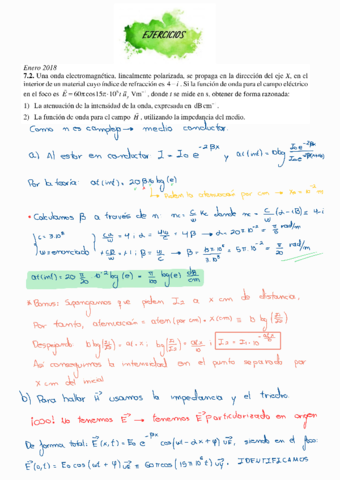 EJERCICIOS
Enero 2018
7.2. Una onda electromagnética, linealmente polarizada, se propaga en la dirección del eje X, en el
interior de un material cuyo índice de refracción es 4 − i. Si la función de onda para el campo eléctrico
en el foco es E = 60π cos15π·10⁶t u_y Vm⁻¹, donde t se mide en s, obtener de forma razonada:
1) La atenuación de la intensidad de la onda, expresada en dB cm⁻¹.
2) La función de onda para el campo H, utilizando la impedancia del medio.
Como n es complejo → medio conductor.
a) Al estar en conductor I = I₀ e^(-2βx) y α(inf) = 10 log
Por la teoría α(inf) = 20 β x₀ log(e)
atenuación por cm →
• Calculamos β a través de n: n = c/w Kc donde n = c/w (α - iβ) = 4 - i
c = 3·10⁸
w enunciado
α(inf) = 20 π/20 10⁻² log(e) = π/500 log(e) dB/cm
• Bonus: Supongamos que piden I₂ a x cm de distancia.
Por tanto, atenuación = aten(por cm) · x(cm) = 10 log(I₁/I₂)
Despejando 10 log(I₁/I₂) = α·x; log(I₁/I₂) = αx/10; I₂ = I₁·10^(-αx/10)
Así conseguimos la intensidad con el punto separado por
x cm del inicial
b) Para hallar H usamos la impedancia y el triedro.
¡OJO! No tenemos E → tenemos E particularizado en origen
De forma total: E(x,t) = E₀ e^(-βx) cos(wt - αx + φ) u_E, siendo en el foco:
E(0,t) = E₀ cos(wt + φ) u_E = 60π cos(15π10⁶t) u_y. IDENTIFICAMOS